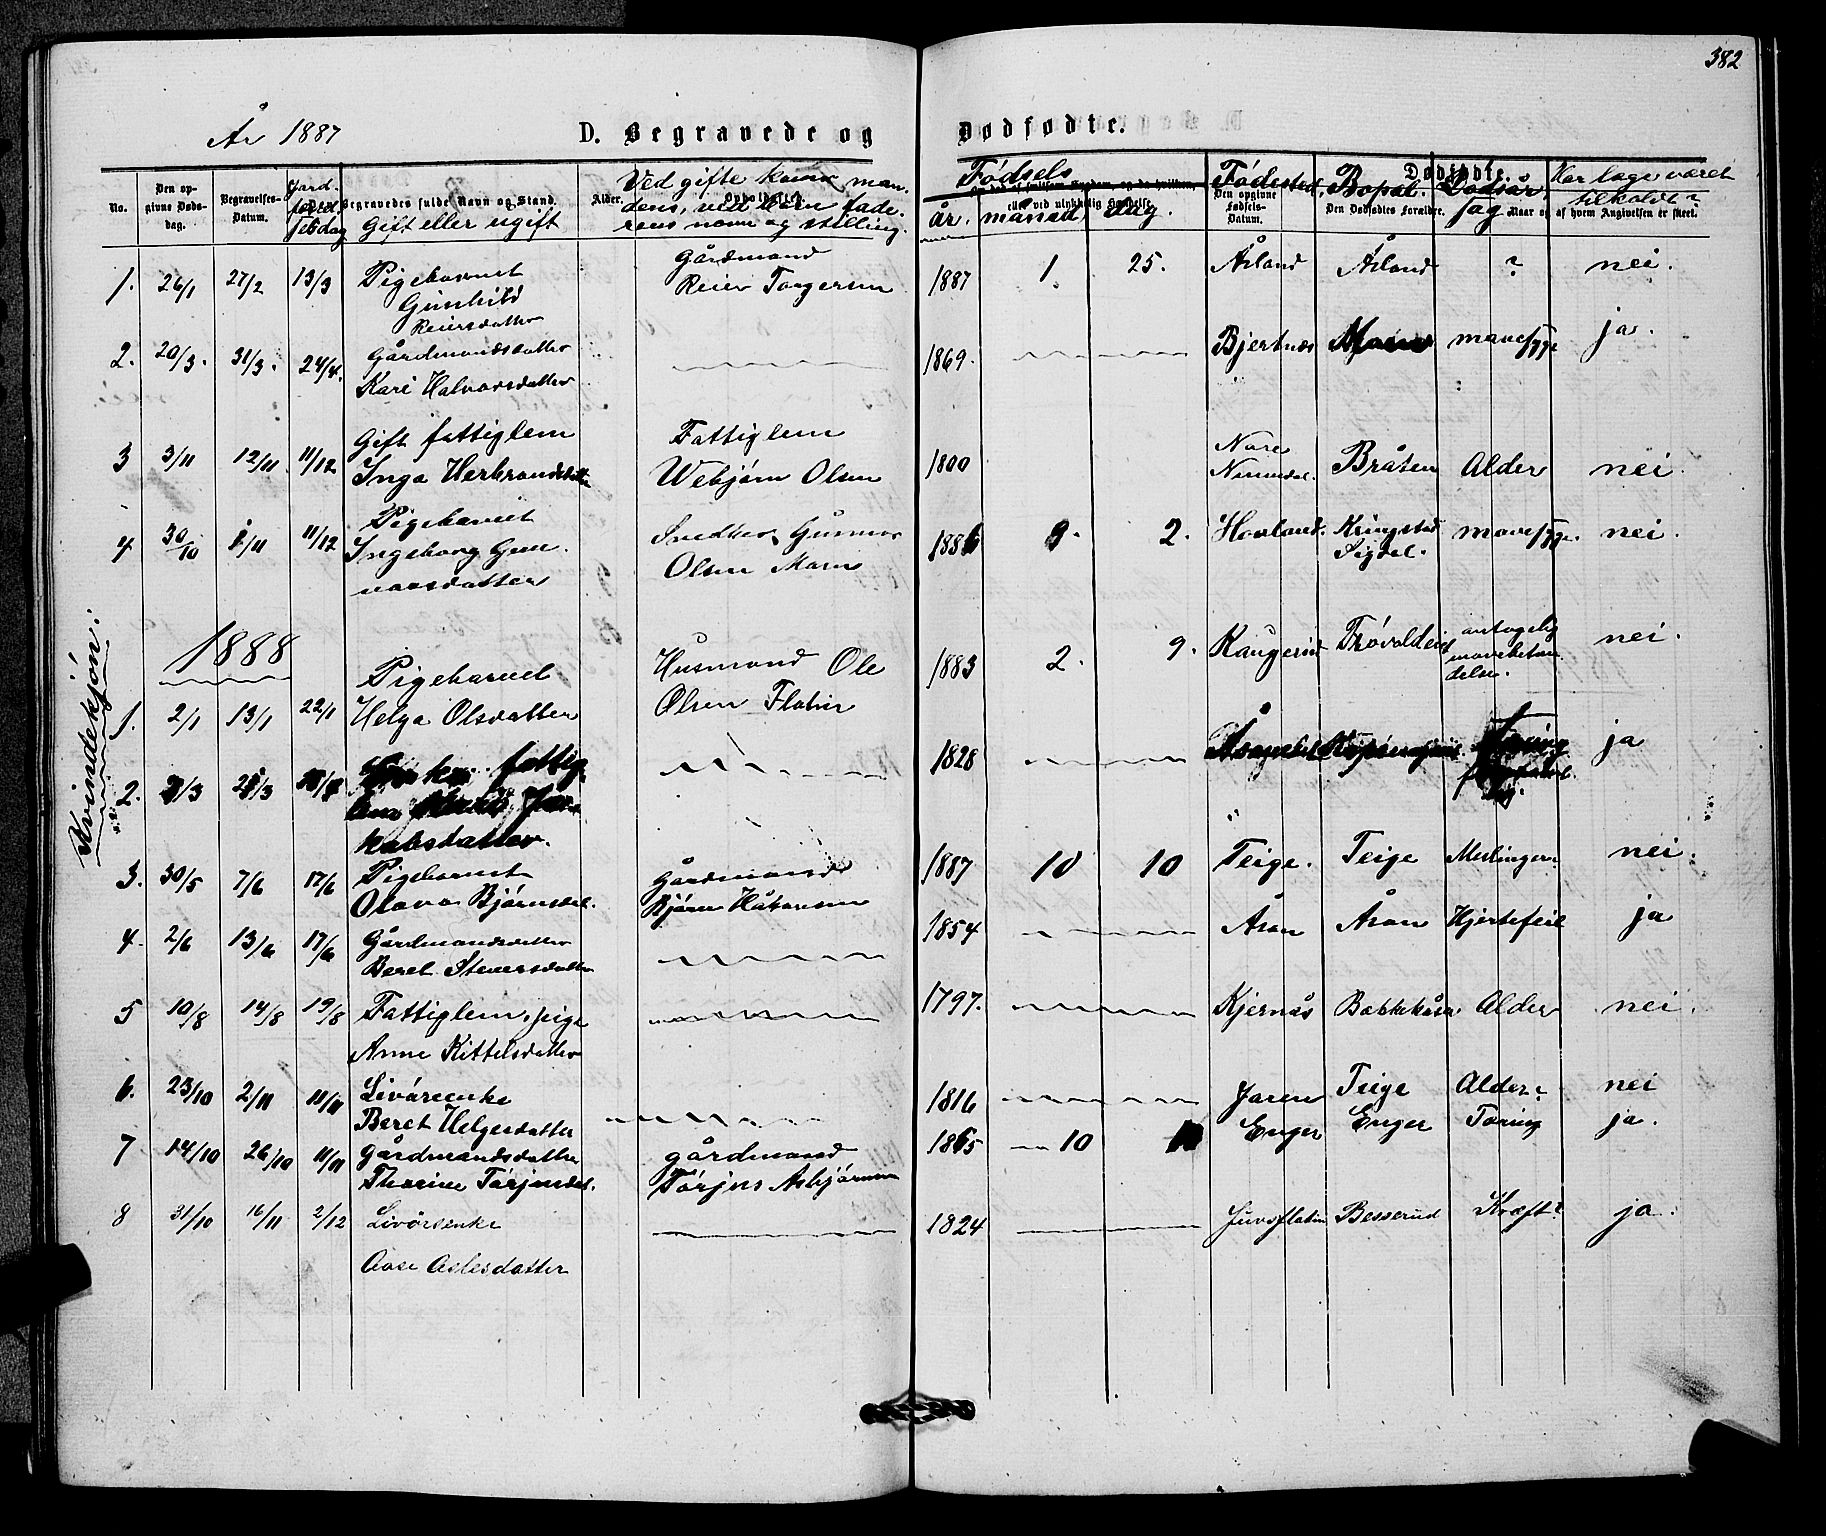 382
År 1887
D. Begravede og Dødfødte.
No.
Den op-
givne Døds-
dag.
Begravelses-
Datum.
Jord-
Den Begravedes fulde Navn og Stand.
Gift eller ugift
Alder.
Opholdssted.
Ved gifte man-
dens, ved børn fade-
rens navn og stilling.
Fødsels
år. månad dag.
Fødested,
Den opgivne
Fødsels-
Datum.
Bopæl.
Dødfødte.
Den Dødfødtes Forældre.
Dødsår-
sag
Har læge været
tilkaldt?
af hvem Angivelsen er skeet.
Kvindekjøn:
1. 26/1 27/2 13/3 Pigebarnet Gunhild Reiersdatter Gårdmand Reier Torgersen 1887 1 25. Åsland Åsland ? nei.
2. 20/3. 31/3. 24/4. Gårdmandsdatter Kari Halvorsdatter 1869. Bjertnæs Moen mavesyge ja.
3 3/11 12/11 11/12 Gift fattiglem Inga Herbrandsdatter Fattiglem Webjørn Olsen 1800 Nore Numedal. Bråten Alder nei.
4 30/10 /11 11/12 Pigebarnet Ingeborg Gun-
narsdatter Gunnar Olsen Moen 1886 9. 2. Hovland. Kringstad Sigdal. mavesyge. nei.
1888
1. 2/1 13/1 22/1 Pigebarnet Helga Olsdatter Husmand Ole Olsen Flatin 1883 2. 9. Kaugerud Trøvoldeid antagelig mavebetæn-
delse. nei.
2. /3 /3 Enke fattig-
lem
kobsdatter. 1828 Tæring ja
3. 30/5 7/6 17/6 Pigebarnet Olava Bjørnsdat. Gårdmand Bjørn Håkonsen 1887 10 10 Teige. Teige nei.
4. 2/6 13/6 17/6 Gårdmandsdatter Beret Steversdatter 1854 Åsan Åsan Hjertefeil ja
5 10/8 14/8 19/8 Fattiglem, pige Anne Kittelsdatter 1797. Kjernås Bakkekåsa Alder nei.
6. 23/10 2/11 11/11 Livørenke Beret Helgesdatter 1816 Jaren Teige Alder? nei
7 14/10 26/10 11/11 Gårdmandsdatter Thorine Torjusdat. gårdmand Torjus Asbjørnsen 1865 10 Enger Enger Tæring ja.
8 31/10 16/11 2/12 Livørsenke Aase Aslesdatter 1824 Juvsflatin Besserud Kræft? ja.